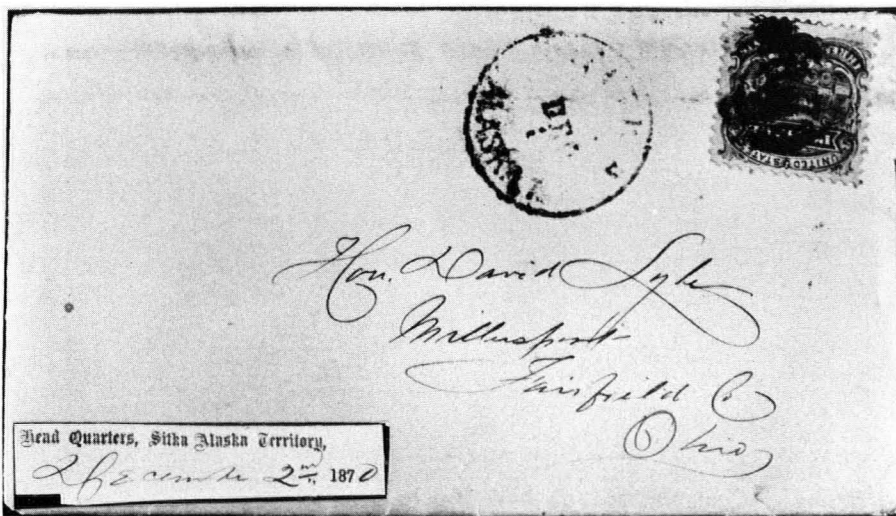 ALASKA
DE
UNITED STATES
Hon. David Lyle
Millersport
Fairfield Co
Ohio
Head Quarters, Sitka Alaska Territory,
December 2nd, 1870